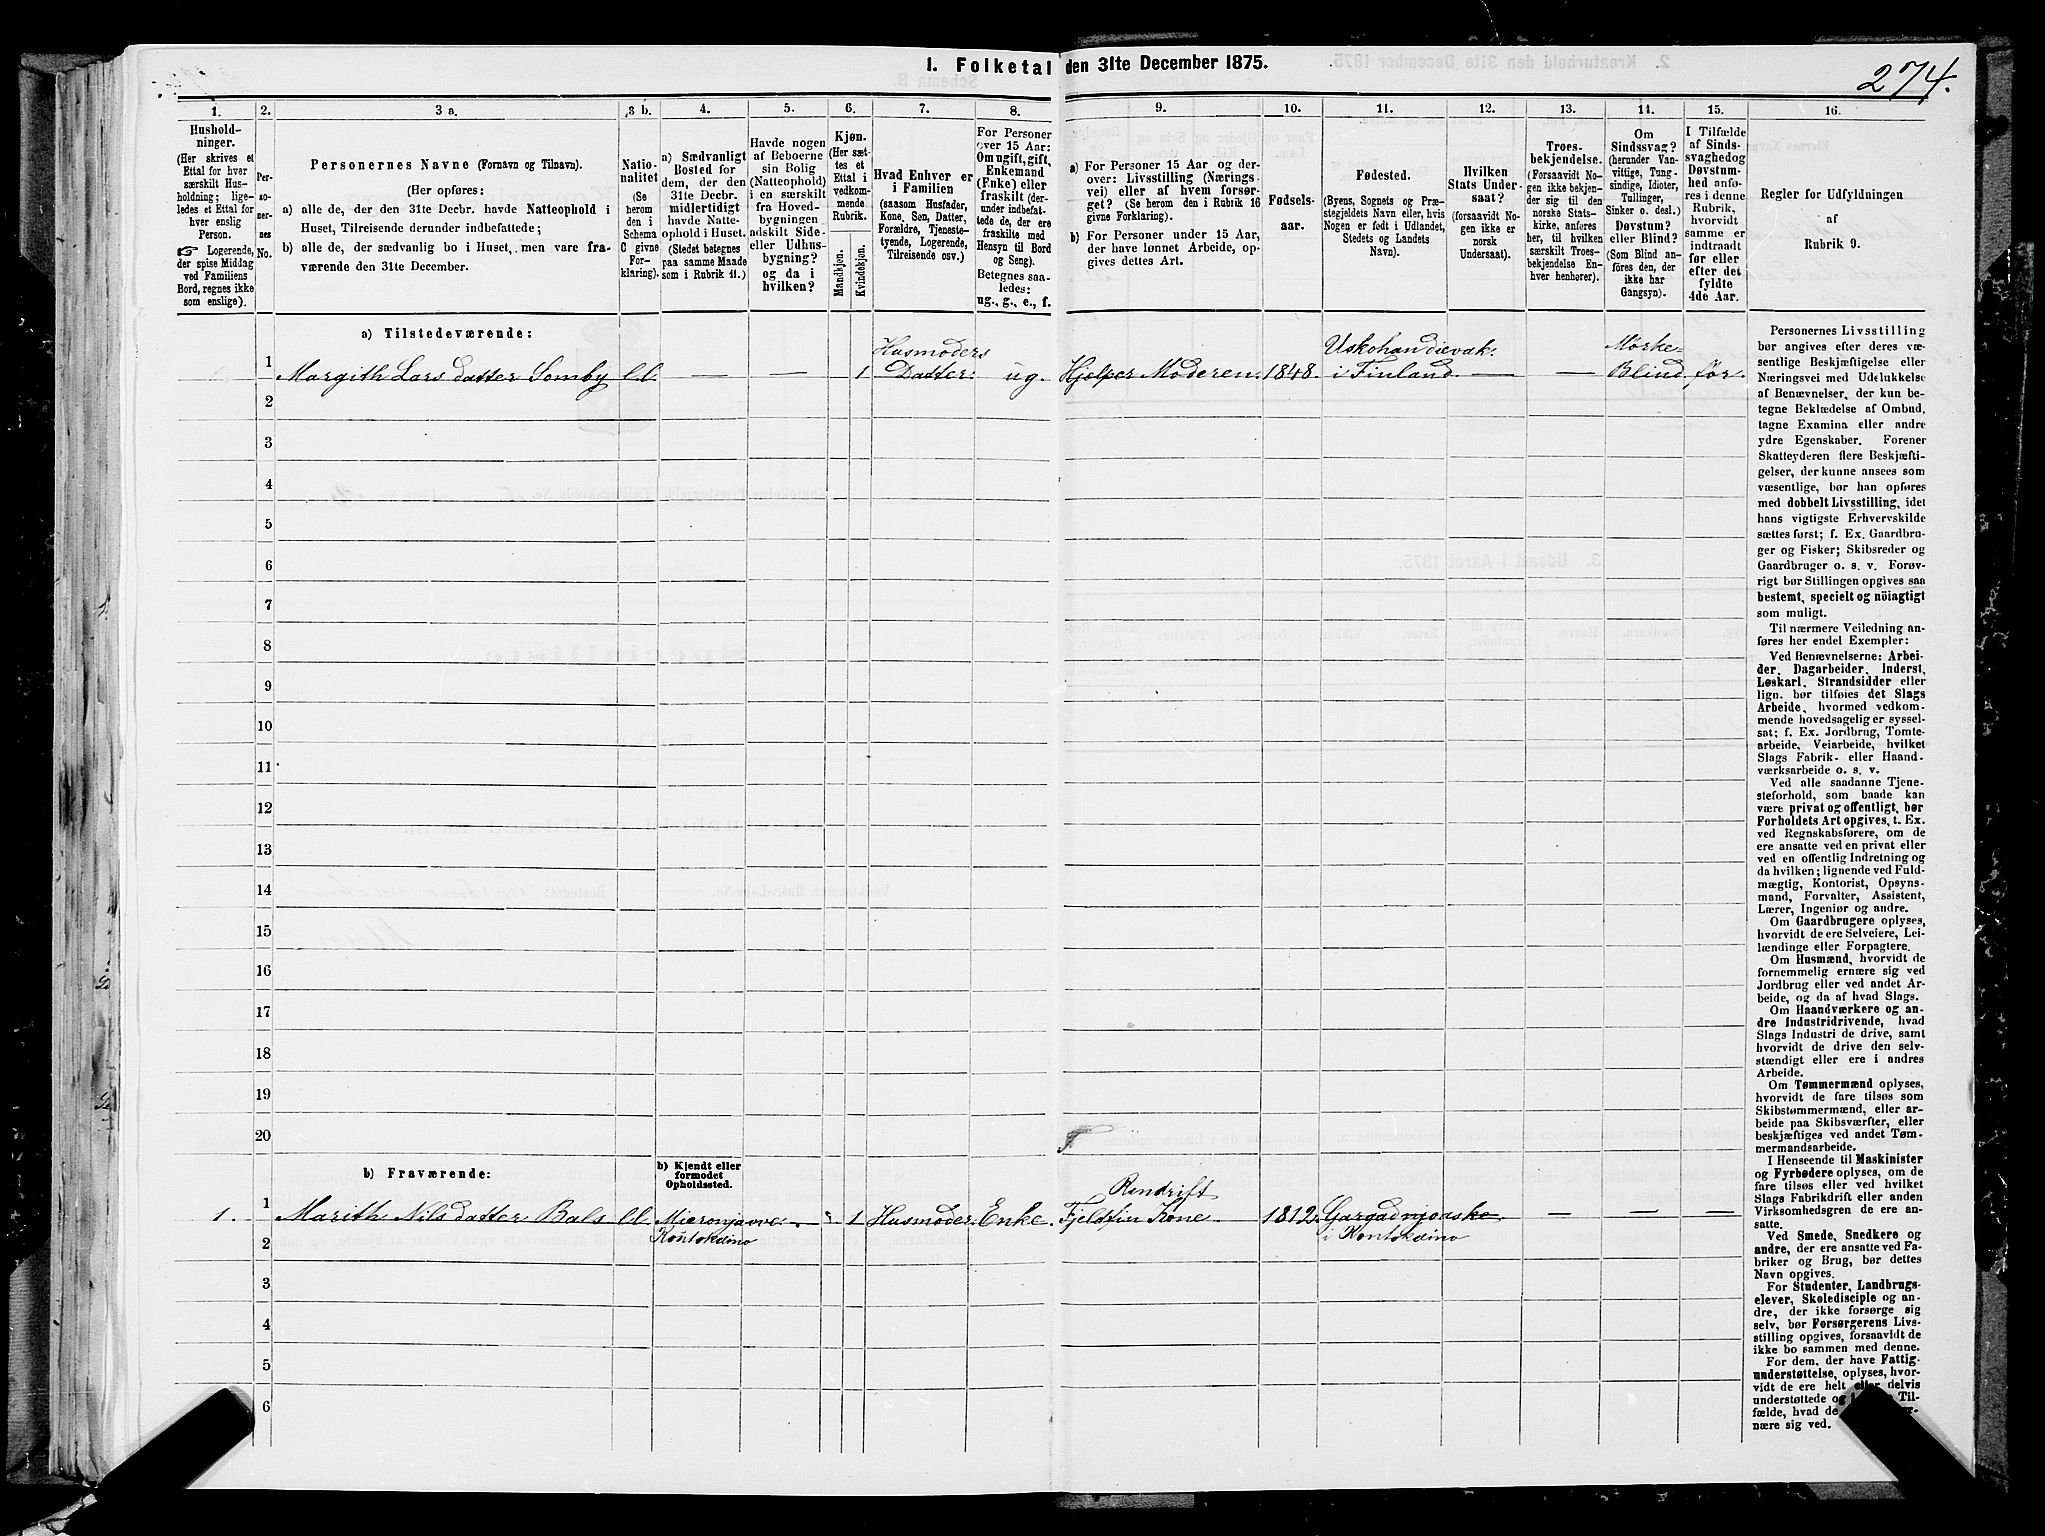 274.
I. Folketal den 31te December 1875.
1.
2.
3 a.
3 b.
4.
5.
6.
7.
8.
9.
10.
11.
12.
13.
14.
15.
16.
Hushold-
ninger.
(Her skrives et
Ettal for hver
særskilt Hus-
holdning; lige-
ledes et Ettal for
hver enslig
Person.
☞ Logerende,
der spise Middag
ved Familiens
Bord, regnes ikke
som enslige).
Per-
so-
ner-
nes
No.
Personernes Navne (Fornavn og Tilnavn).
(Her opføres:
a) alle de, der den 31te Decbr. havde Natteophold i
Huset, Tilreisende derunder indbefattede;
b) alle de, der sædvanlig bo i Huset, men vare fra-
værende den 31te December.
Natio-
nalitet
(Se
herom
den i
Schema
C givne
For-
klaring).
a) Sædvanligt
Bosted for
dem, der den
31te Decbr.
midlertidigt
havde Natte-
ophold i Huset.
(Stedet betegnes
paa samme Maade
som i Rubrik 11.)
Havde nogen
af Beboerne
sin Bolig
(Natteophold)
i en særskilt
fra Hoved-
bygningen
adskilt Side-
eller Udhus-
bygning?
og da i
hvilken?
Kjøn.
(Her sæt-
tes et
Ettal i
vedkom-
mende
Rubrik.
Mandkjøn.
Kvindekjøn.
Hvad Enhver er
i Familien
(saasom Husfader,
Kone, Søn, Datter,
Forældre, Tjeneste-
tyende, Logerende,
Tilreisende osv.)
For Personer
over 15 Aar:
Om ugift, gift,
Enkemand
(Enke) eller
fraskilt (der-
under indbefat-
tede de, der ere
fraskilte med
Hensyn til Bord
og Seng).
Betegnes saa-
ledes:
ug., g., e., f.
a) For Personer 15 Aar og der-
over: Livsstilling (Nærings-
vei) eller af hvem forsør-
get? (Se herom den i Rubrik 16
givne Forklaring).
b) For Personer under 15 Aar,
der have lønnet Arbeide, op-
gives dettes Art.
Fødsels-
aar.
Fødested.
(Byens, Sognets og Præ-
stegjeldets Navn eller, hvis
Nogen er født i Udlandet,
Stedets og Landets
Navn).
Hvilken
Stats Under-
saat?
(forsaavidt No-
gen ikke er
norsk
Undersaat).
Troes-
bekjendelse.
(Forsaavidt No-
gen ikke bekjen-
der sig til den
norske Stats-
kirke, anføres
her, til hvilken
særskilt Troes-
bekjendelse En-
hver henhører).
Om
Sindssvag?
(herunder Van-
vittige, Tung-
sindige, Idioter,
Tullinger,
Sinker o. desl.)
Døvstum?
eller Blind?
(Som Blind an-
føres den, der
ikke har
Gangsyn).
I Tilfælde
af Sinds-
svaghedog
Døvstum-
hed anfø-
res i denne
Rubrik,
hvorvidt
samme er
indtraadt
før eller
efter det
fyldte
4de Aar.
Regler for Udfyldningen
af
Rubrik 9.
a) Tilstedeværende:
1 Margith Larsdatter Somby l.l. — — 1 Husmoders Datter: ug. Hjelper Moderen. 1848. Uskohandievak. i Finland — — Mørke-Blind før.
2
3
4
5
6
7
8
9
10
11
12
13
14
15
16
17
18
19
20
b) Fraværende:
b) Kjendt eller
formodet
Opholdssted.
Rendrift
1. 1 Marith Nilsdatter Bals l.l. Mieronjavve 1 Husmoder. Enke. Fjeldfin Kone 1812. Gargadnjoaske — — — —
2 Kontokeino i Kontokeino
3
4
5
6
Personernes Livsstilling
bør angives efter deres væ-
sentlige Beskjæftigelse eller
Næringsvei med Udelukkelse
af Benævnelser, der kun be-
tegne Beklædelse af Ombud,
tagne Examina eller andre
ydre Egenskaber. Forener
Skatteyderen flere Beskjæfti-
gelser, der kunne ansees som
væsentlige, bør han opføres
med dobbelt Livsstilling, idet
hans vigtigste Erhvervskilde
sættes først; f. Ex. Gaardbru-
ger og Fisker; Skibsreder og
Gaardbruger o. s. v. Forøv-
rigt bør Stillingen opgives saa
bestemt, specielt og nöiagtigt
som muligt.
Til nærmere Veiledning an-
føres her endel Exempler:
Ved Benævnelserne: Arbei-
der, Dagarbeider, Inderst,
Løskarl, Strandsidder eller
lign. bør tilføies det Slags
Arbeide, hvormed vedkom-
mende hovedsagelig er syssel-
sat; f. Ex. Jordbrug, Tomte-
arbeide, Veiarbeide, hvilket
Slags Fabrik- eller Haand-
værksarbeide o. s. v.
Ved alle saadanne Tjene-
steforhold, som baade kan
være privat og offentligt, bør
Forholdets Art opgives, t. Ex.
ved Regnskabsførere, om de
ere ansatte ved en privat eller
ved en offentlig Indretning og
da hvilken; lignende ved Fuld-
mægtig, Kontorist, Opsyns-
mand, Forvalter, Assistent,
Lærer, Ingeniør og andre.
Om Gaardbrugere oplyses,
hvorvidt de ere Selveiere, Lei-
lændinge eller Forpagtere.
Om Husmænd, hvorvidt de
fornemmelig ernære sig ved
Jordbrug eller ved andet Ar-
beide, og da af hvad Slags.
Om Haandværkere og an-
dre Industridrivende, hvad
Slags Industri de drive, samt
hvorvidt de drive den selv-
stændigt eller ere i andres
Arbeide.
Om Tømmermænd oplyses,
hvorvidt de fare tilsøs som
Skibstømmermænd, eller ar-
beide paa Skibsværfter, eller
beskjæftiges ved andet Tøm-
mermandsarbeide.
I Henseende til Maskinister
og Fyrbødere oplyses, om de
fare tilsøs eller ved hvilket
Slags Fabrikdrift eller anden
Virksomhedsgren de ere an-
satte.
Ved Smede, Snedkere og
andre, der ere ansatte ved Fa-
briker og Brug, bør dettes
Navn opgives.
For Studenter, Landbrugs-
elever, Skoledisciple og an-
dre, der ikke forsørge sig
selv, bør Forsørgerens Livs-
stilling opgives, forsaavidt de
ikke bo sammen med denne.
For dem, der have Fattig-
understøttelse, oplyses, hvor-
vidt de ere helt eller delvis
understøttede og i Til-
fælde, hvad de
nære sig ved.